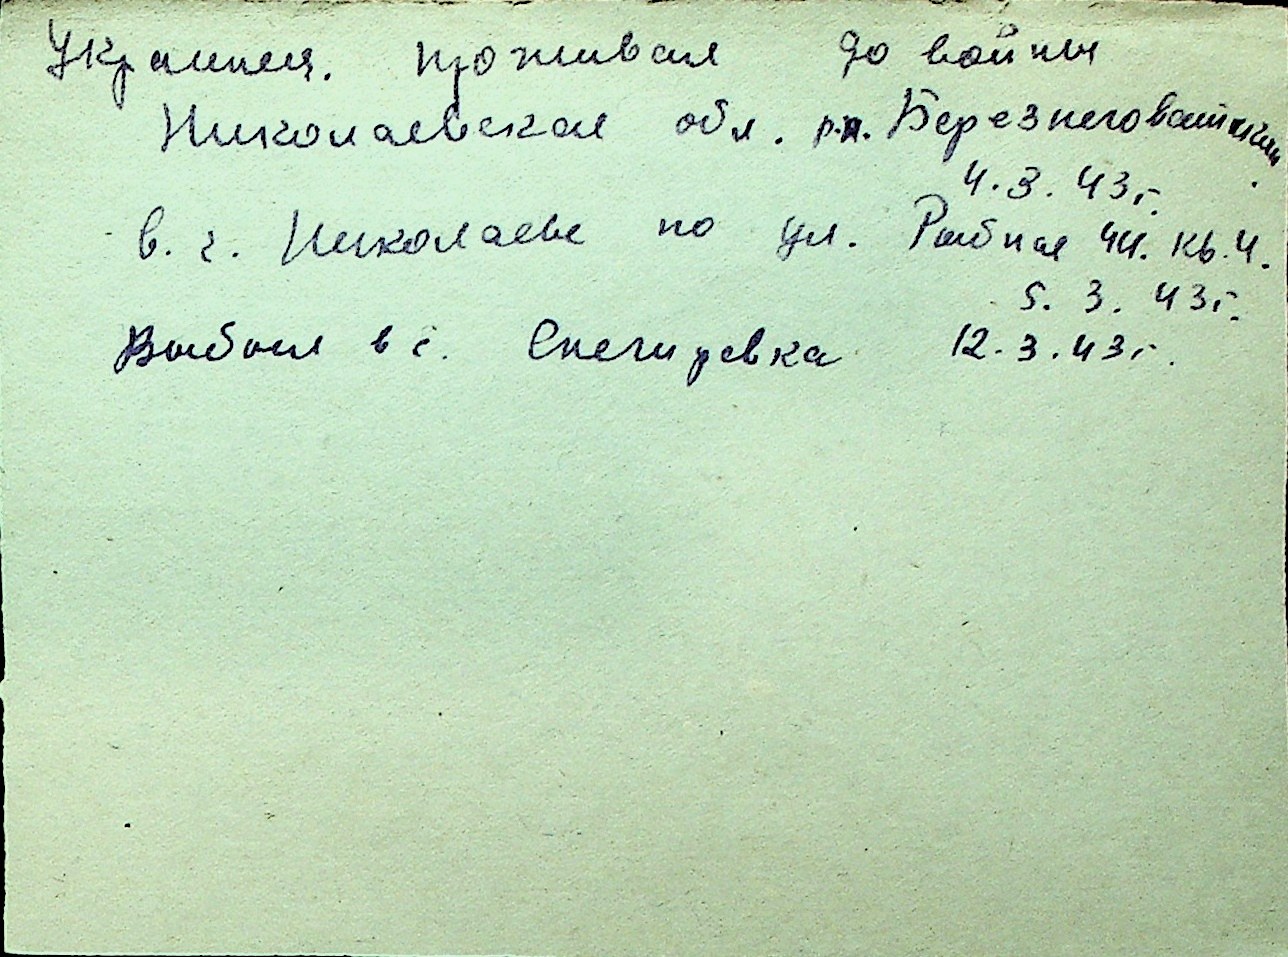 Украинец. проживал до войны
Николаевская обл. р.н. Березнеговатский
4.3.43г.
в. г. Николаеве по ул. Рыбная 44. кв. 4.
5. 3. 43г.
Выбыл в с. Снегиревка 12.3.43г.